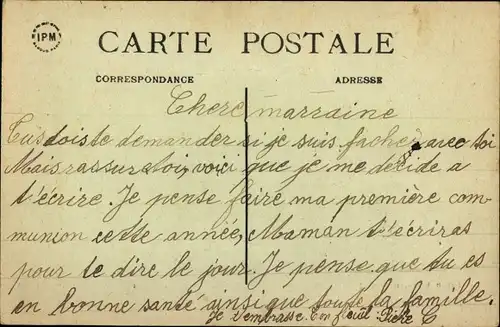 IPM
CARTE POSTALE
CORRESPONDANCE
ADRESSE
Chere marraine
Tu dois te demander si je suis fachée avec toi
Mais rassure toi, voici que je me décide a
t'écrire. Je pense faire ma première com-
munion cette année, Maman t'écriras
pour te dire le jour. Je pense que tu es
en bonne santé ainsi que toute la famille.
Je t'embrasse Ton